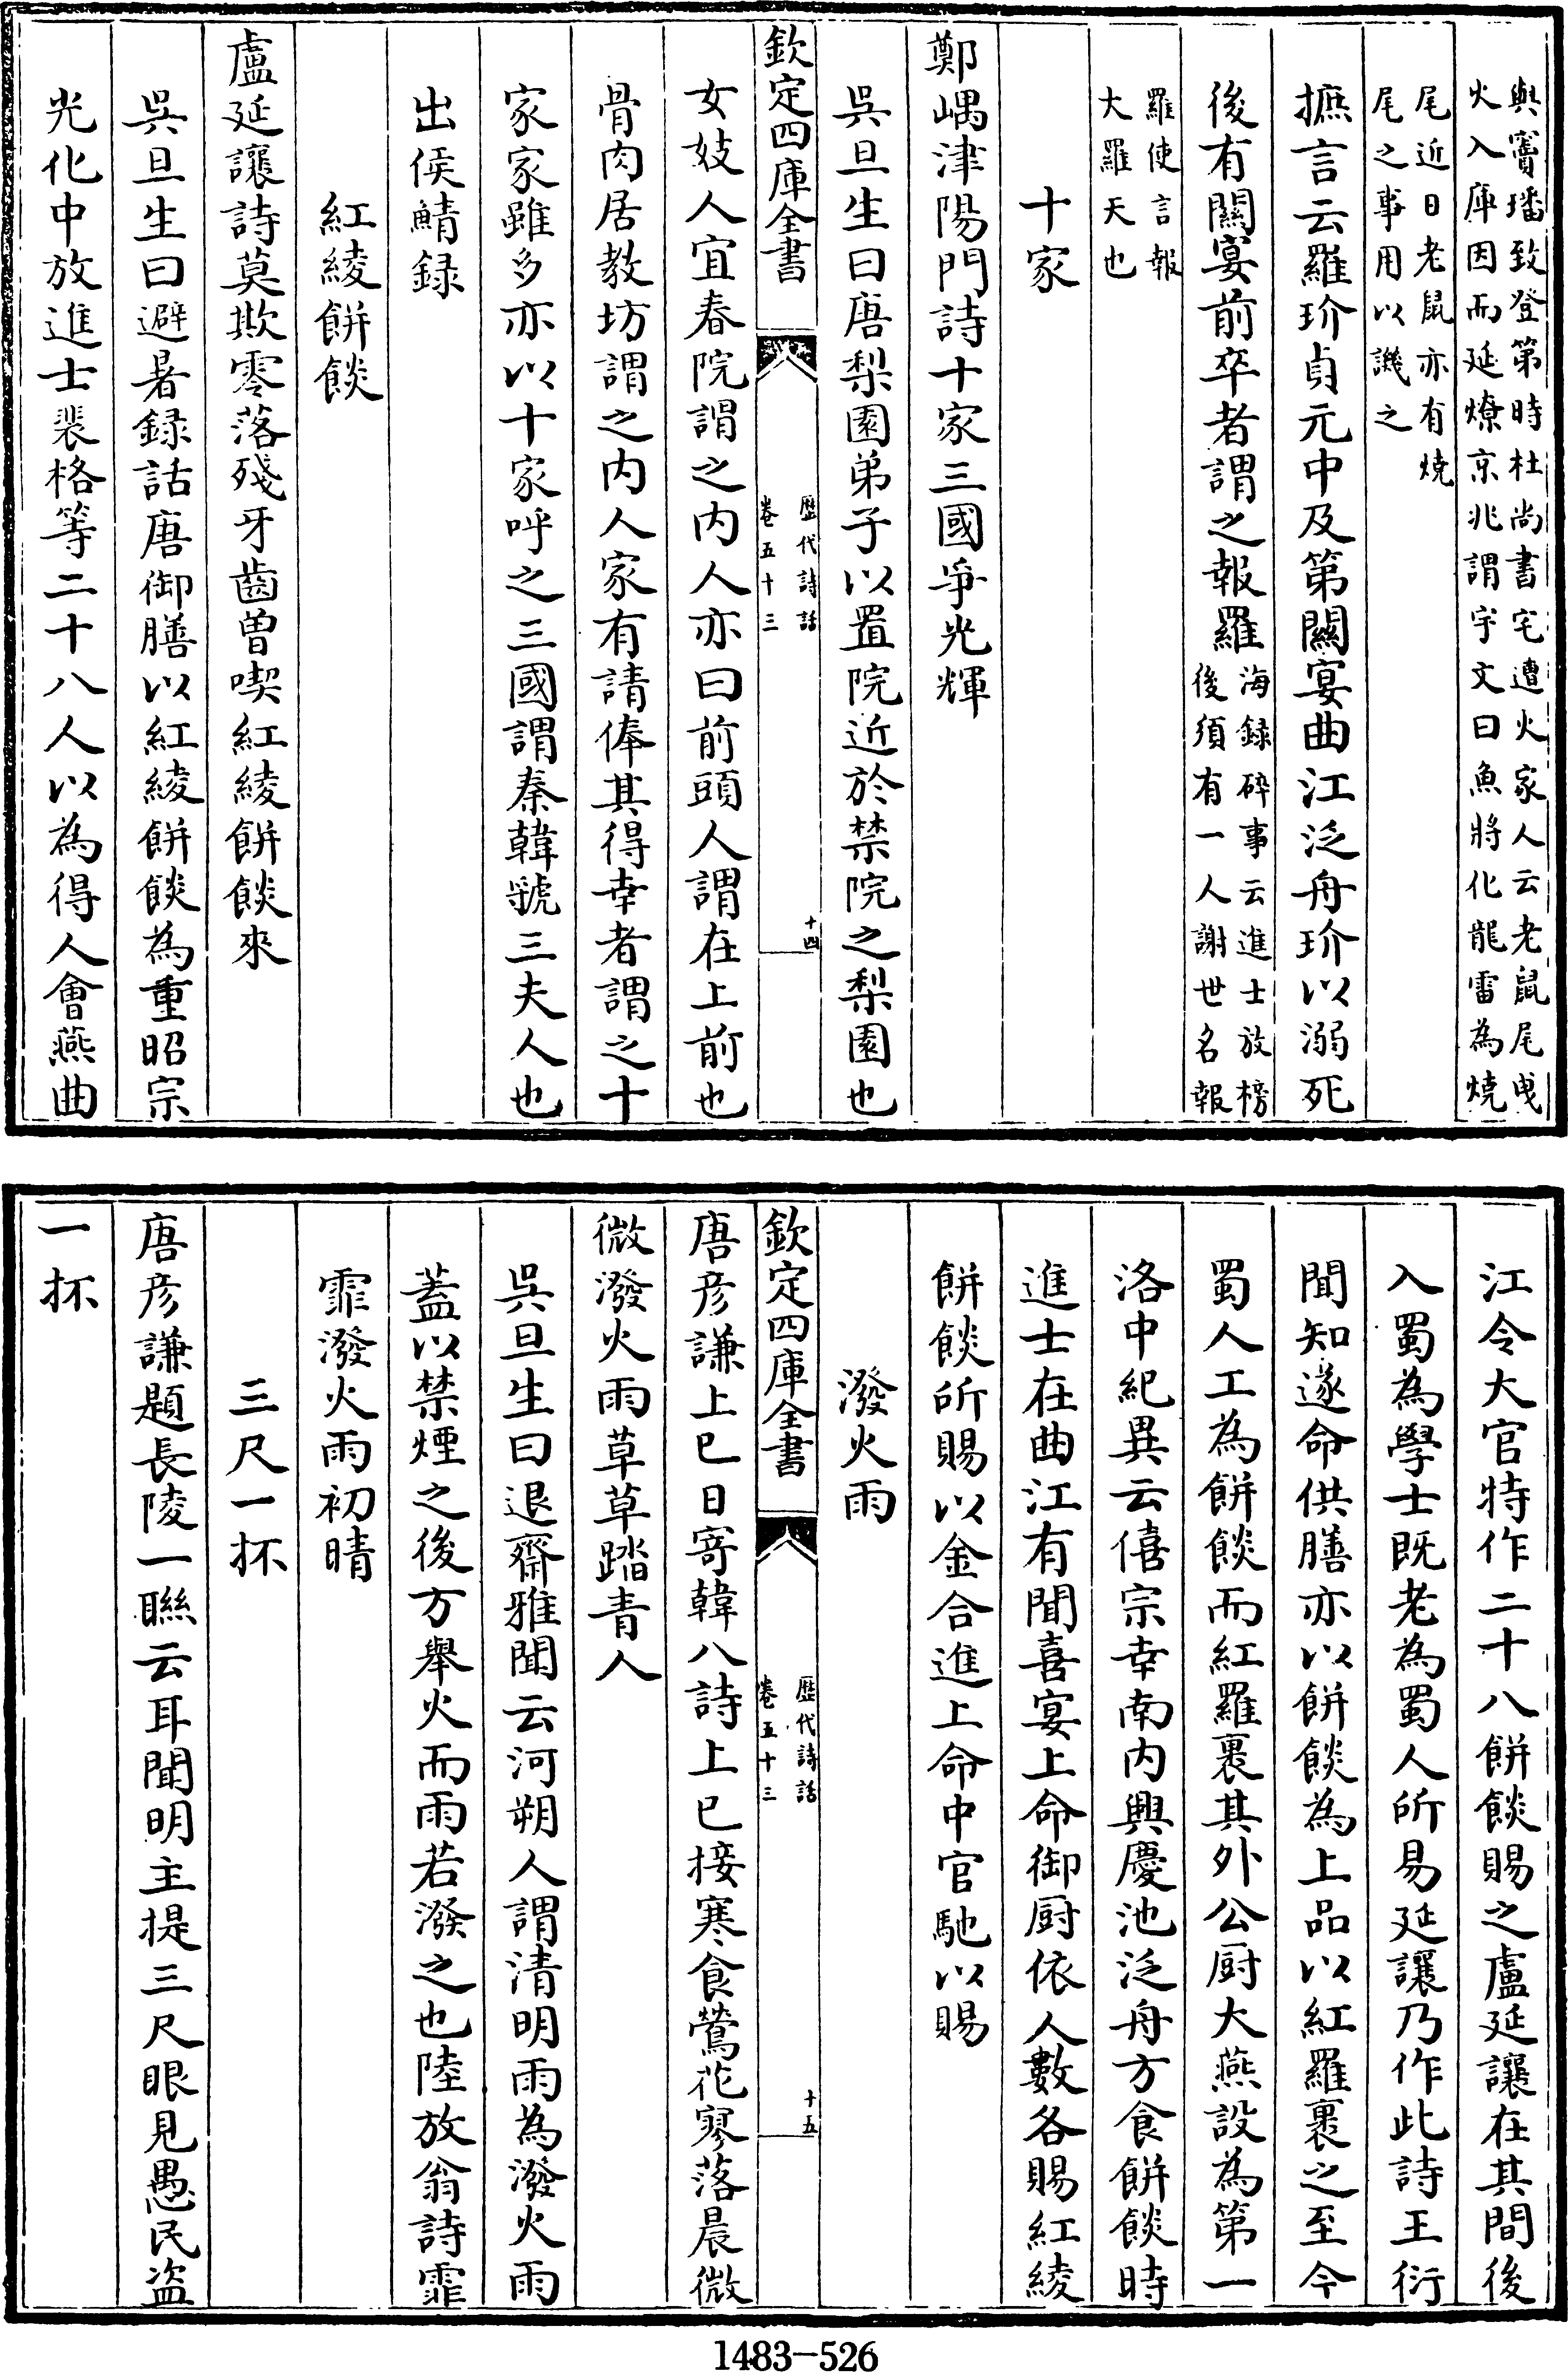 與竇璠致登第時杜尚書宅遭火家人云老鼠尾曵
火入庫因而延燎京兆謂宇文曰魚將化龍雷為燒
尾近日老鼠亦有燒
尾之事用以譏之
摭言云羅玠貞元中及第闗宴曲江泛舟玠以溺死
後有闗宴前卒者謂之報羅
海録碎事云進士放榜
後須有一人謝世名報
羅使言報
大羅天也
十家
鄭嵎津陽門詩十家三國爭光輝
吳旦生曰唐梨園弟子以置院近於禁院之梨園也
欽定四庫全書
歴代詩話
卷五十三
十四
女妓人宜春院謂之内人亦曰前頭人謂在上前也
骨肉居教坊謂之内人家有請俸其得幸者謂之十
家家雖多亦以十家呼之三國謂秦韓虢三夫人也
出侯鯖録
紅綾餅餤
盧延讓詩莫欺零落殘牙齒曽喫紅綾餅餤來
吳旦生曰避暑録話唐御膳以紅綾餅餤為重昭宗
光化中放進士裴格等二十八人以為得人會燕曲
江令大官特作二十八餅餤賜之盧延讓在其間後
入蜀為學士既老為蜀人所易延讓乃作此詩王衍
聞知遂命供膳亦以餅餤為上品以紅羅裹之至今
蜀人工為餅餤而紅羅裹其外公厨大燕設為第一
洛中紀異云僖宗幸南内興慶池泛舟方食餅餤時
進士在曲江有聞喜宴上命御厨依人數各賜紅綾
餅餤所賜以金合進上命中官馳以賜
潑火雨
欽定四庫全書
歴代詩話
卷五十三
十五
唐彦謙上巳日寄韓八詩上巳接寒食鶯花寥落晨微
微潑火雨草草踏青人
吳旦生曰退齋雅聞云河朔人謂清明雨為潑火雨
蓋以禁煙之後方舉火而雨若潑之也陸放翁詩霏
霏潑火雨初晴
三尺一抔
唐彦謙題長陵一聯云耳聞明主提三尺眼見愚民盜
一抔
1483-526